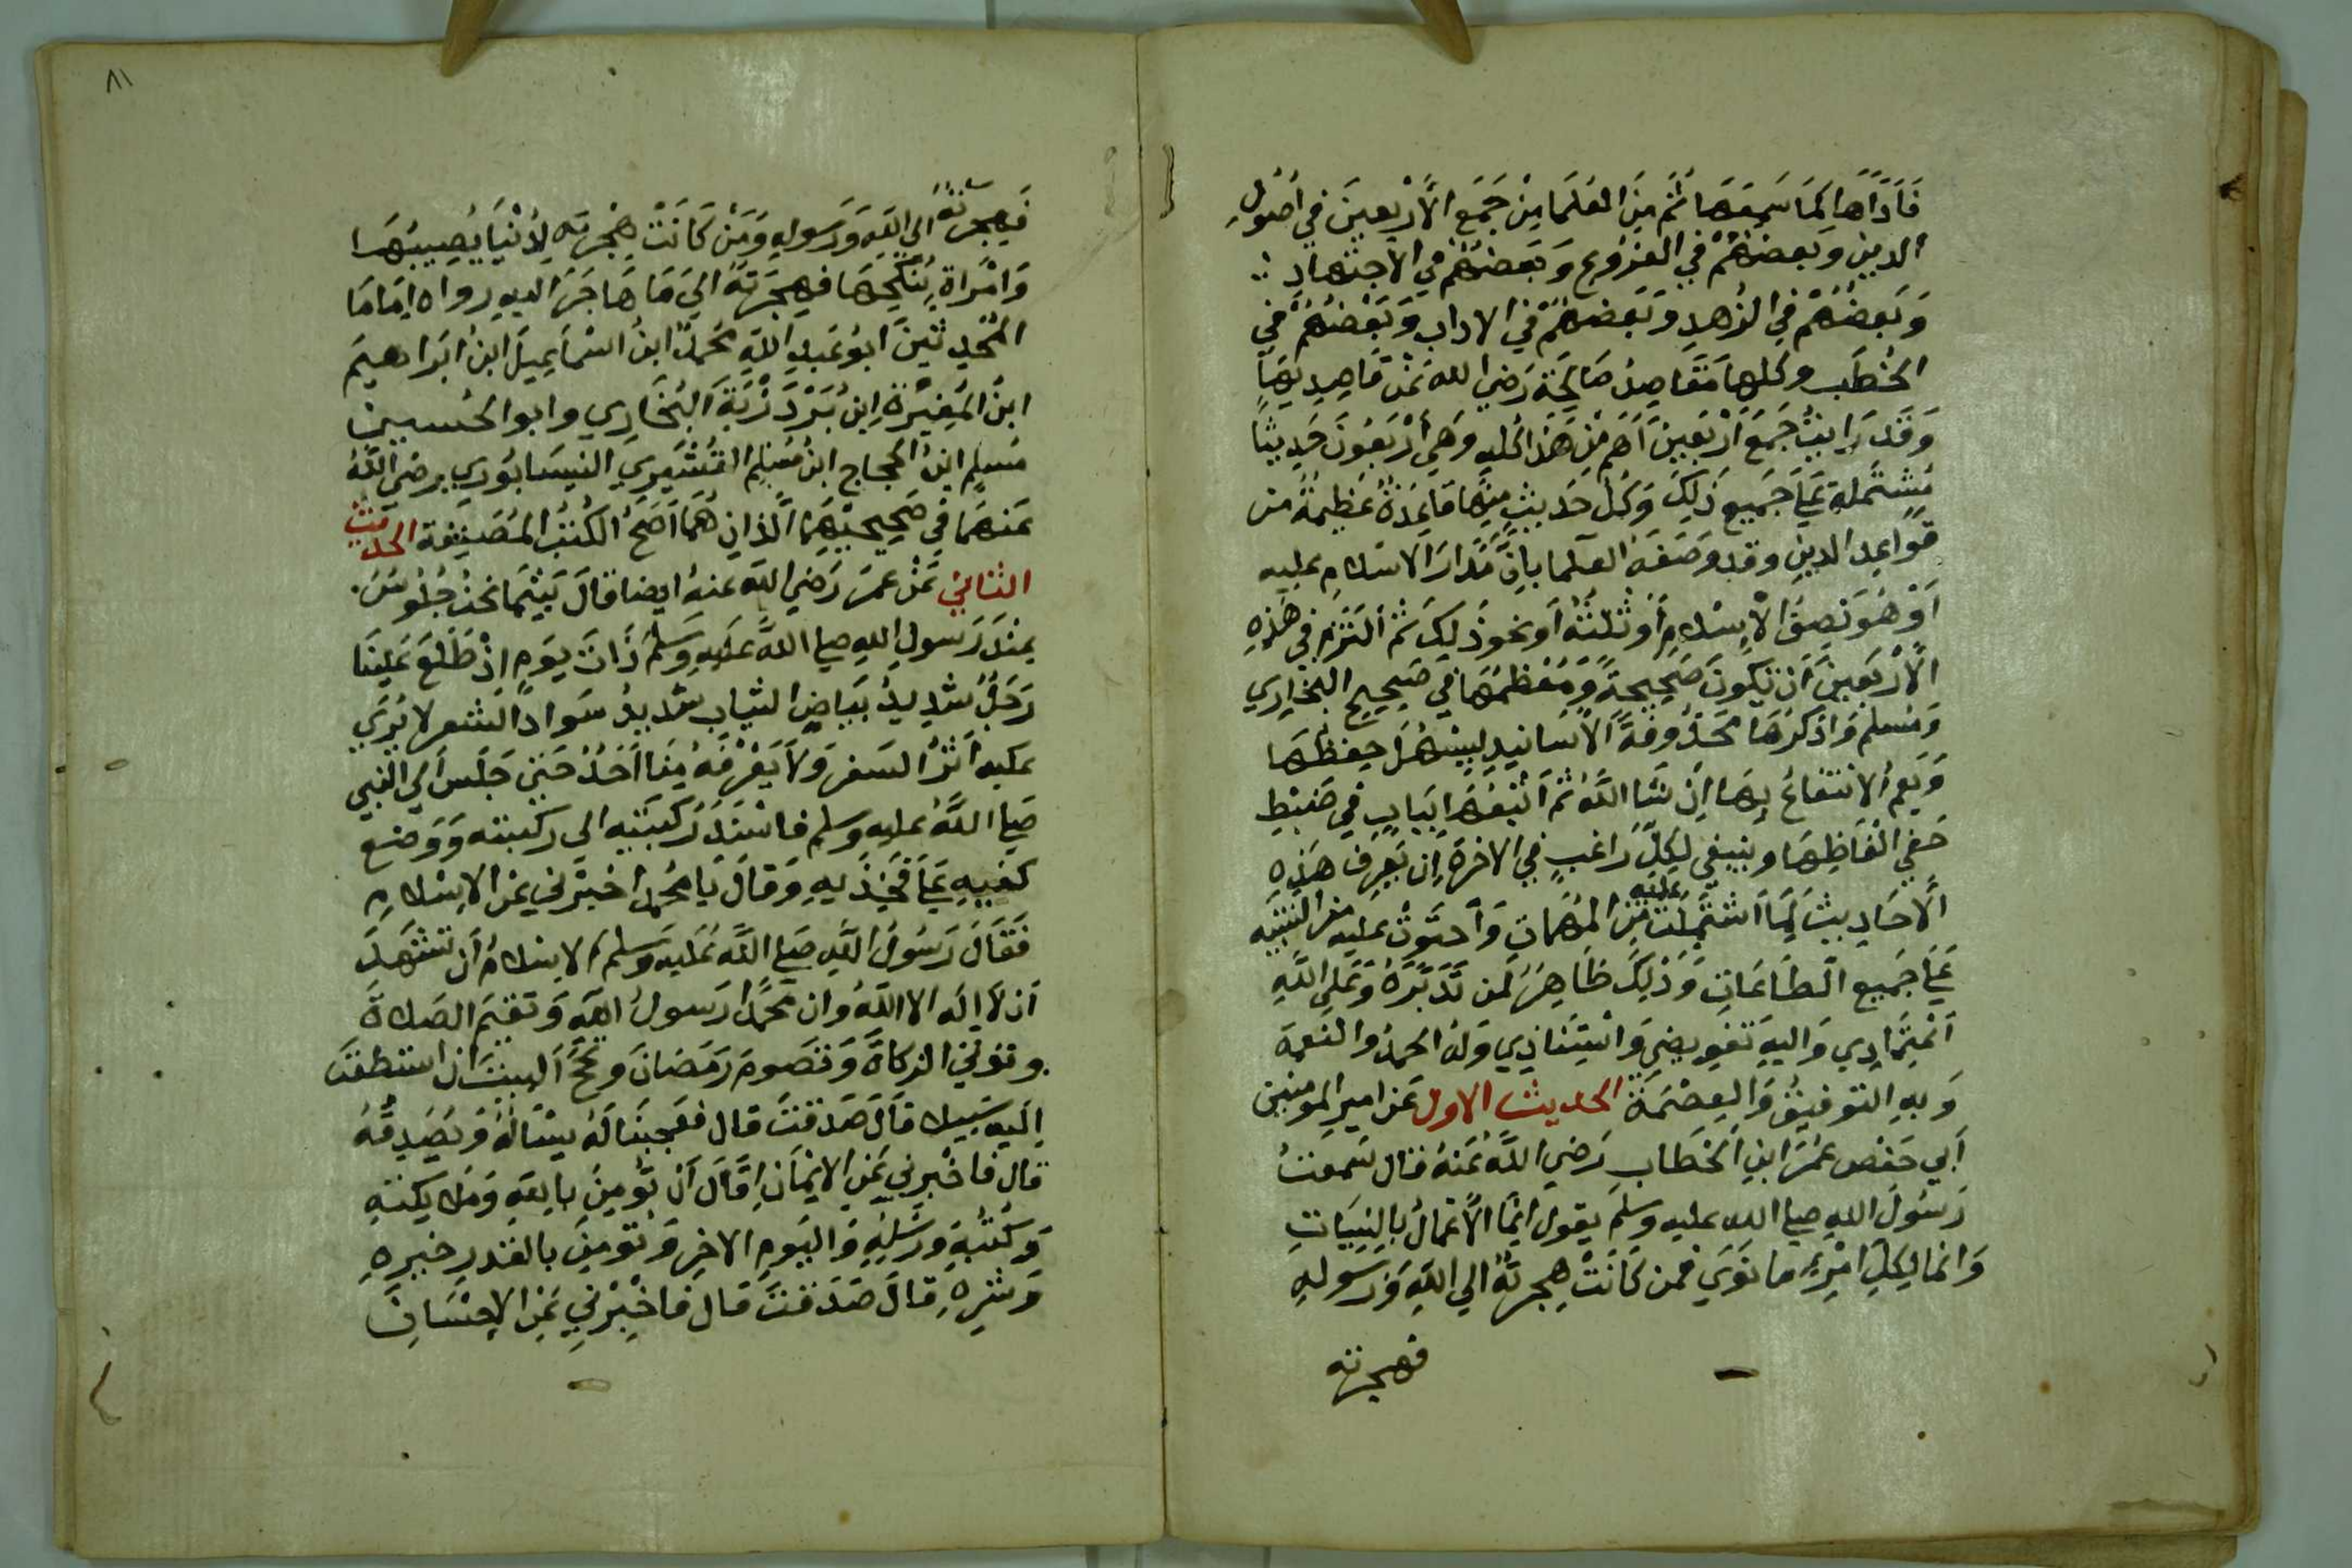 فَأَدَّاهَا كَمَا سَمِعَهَا ثُمَّ مِنَ العُلَمَا مِنْ جَمَعَ الأَرْبَعِينَ فِي أُصُولِ
الدينِ وَبَعضهُمْ فِي الفرُوعِ وَبَعضهُمْ فِي الاجتهَادِ
وَبَعضُهُمْ فِي الزُهدِ وَبَعضهُمْ فِي الاداب وَبَعْضُهُمْ فِي
الخُطَب وكلهَا مَقَاصِدُ صَالِحَة رَضِيَ الله عَنْ قَاصِدِيهَا
وَقَد رَايتُ جَمْعَ أَرْبَعِينَ أَهَم مِنْ هَذَا كُلهِ وَهِيَ أَرْبَعُونَ حَدِيثًا
مُشتَملة عَلَى جَمِيع ذَلِكَ وَكُل حَدِيثٍ مِنهَا قَاعِدَةٌ عَظِيمَةٌ من
قَوَاعِدِ الدينِ وقد وَصَفَهُ العُلما بِأَنَّ مَدَارَ الاسْلامِ عليهِ
أَوْ هُوَ نِصفُ الإسْلامِ أَوْ ثُلثُهُ أَو نحو ذَلِكَ ثُمَّ ألتَزم فِي هَذِهِ
الأَرْبَعِينَ أَنْ تَكُونَ صَحِيحَةً وَمُعْظَمُهَا فِي صَحِيحِ البخاري
وَمُسْلِم وَاذكرهَا مَحذُوفَةَ الأَسَانيدِ لِيَسْهُلَ حِفظُهَا
وَيَعُم الانتفاعُ بِهَا إِنْ شَا اللهُ ثُمَّ أتبعُهَا بِبَابٍ فِي ضَبطِ
خَفِي ألفَاظِهَا وينبغي لِكُلِّ رَاغبٍ فِي الاخرَة ان يَعرف هَذِهِ
الأَحَادِيثَ لِمَا اشتَمَلَت عليه مِنَ المُهمَاتِ وَاحتَوَتْ عليه من التنبيه
عَلَى جَمِيع الطَاعَاتِ وَذَلِكَ ظَاهِرٌ لمَن تَدَبَّرَهُ وَعَلَى اللهِ
اعْتِمَادِي وَاليهِ تَفويضِي وَاسْتِنَادِي وَلَهُ الحَمدُ والنعمة
وَبهِ التوفيقُ وَالعِصْمَةُ الحديث الاول عَن امير المومنين
أَبِي حَفص عُمَرَ ابنِ الخَطَاب رَضِيَ اللهُ عَنهُ قال سَمعتُ
رَسُولَ اللهِ صلى الله عليهِ وسلم يقول انمَا الأَعْمَالُ بِالنِيَّاتِ
وَانما لِكُلِ امْرِءٍ مَا نَوَى فمن كَانَتْ هِجرتُهُ الي اللهِ وَرَسُولهِ
فهجرته
٨١
فَهِجرتُهُ الى اللهِ وَرَسُولِهِ وَمَنْ كَانَتْ هِجْرَتُه لِدُنْيَا يُصِيبُهَا
وَامْرَاةٍ يَنكِحهَا فَهِجْرَتهُ الي مَا هَاجَرَ اليهِ رواه امَامَا
المُحَدِثينَ أَبُو عَبدِ اللهِ مُحَمدُ ابنُ اسْمَاعِيلَ ابنُ ابرَاهيمَ
ابنُ المُغِيرَةِ ابنُ بَرْدَزْبَة البُخَارِي وابو الحُسينِ
مُسْلِم ابنُ الحجاج ابنُ مُسْلِم القُشَيري النيسَابُورِي رضي اللهُ
عَنهُمَا فِي صَحِيحَيْهِمَا الذانِ هُمَا أَصَحُ الكُتُبِ المُصَنفة الحديثُ
الثاني عَنْ عمَرَ رَضِيَ الله عنهُ ايضا قَالَ بَيْنَمَا نحنُ جُلُوسٌ
عِندَ رَسولِ اللهِ صلى اللهُ عَليهِ وَسَلمَ ذَاتَ يَومٍ اِذْ طَلَعَ عَلينَا
رَجُلٌ شَدِيدُ بَيَاضِ الثيابِ شَديدُ سَوادِ الشعر لا يُرَى
عَليهِ أَثَرُ السَفَر وَلا يَعْرِفهُ مِنا أَحَدٌ حَتَى جَلَسَ الي النبي
صَلى اللهُ عليهِ وسلم فاسْنَدَ رُكبَتيهِ الى ركبتيه وَوَضع
كَفَّيهِ عَلَى فَخِذَيهِ وَقَالَ يَا مُحَمد اخبِرْنِي عَنِ الاسْلامِ
فَقَالَ رَسُولُ اللهِ صَلى اللهُ عَليهِ وَسَلمَ الاسْلامُ أَنْ تَشْهَدَ
أَن لا إِلَه الا اللهُ وان مُحَمدًا رَسولُ اللهِ وَتقيمَ الصَلاةَ
وتوتي الزكاةَ وَتصُومَ رَمَضَانَ وتَحُجَّ البيتَ ان استطعتَ
إِليهِ سَبِيلا قَالَ صَدَقتَ قَال فَعَجِبنَا لَهُ يسْالهُ وَيُصَدِقُهُ
قَال فَاخبِرنِي عَنِ الايمَانِ قَالَ أَنْ تُومِنَ بِاللهِ وَمَلايكتهِ
وَكُتبهِ وَرُسُلِهِ وَاليَوْمِ الاخِرِ وَتُومِنَ بالقدر خيره
وَشرهِ قَالَ صَدَقتَ قَال فَاخْبِرْنِي عَنِ الاحْسَانِ